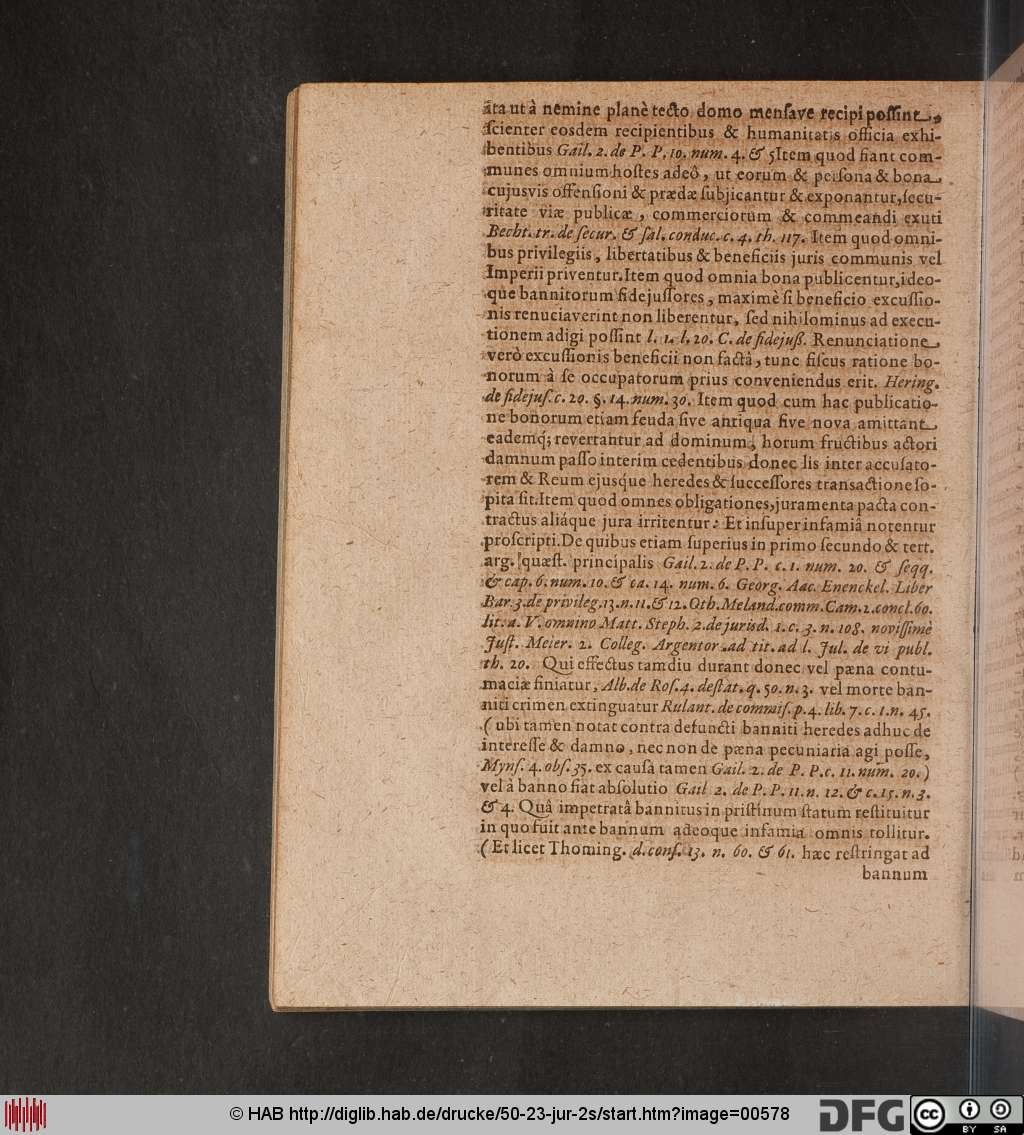 ita ut à nemine planè tecto domo mensave recipi possint,
scienter eosdem recipientibus & humanitatis officia exhi-
bentibus Gail. 2. de P. P. 10. num. 4. & 5 Item quod fiant com-
munes omnium hostes adeò, ut eorum & persona & bona
cujusvis offensioni & prædæ subjicantur & exponantur, secu-
ritate viæ publicæ, commerciorum & commeandi exuti
Becht. tr. de secur. & sal. conduc. c. 4. th. 117. Item quod omni-
bus privilegiis, libertatibus & beneficiis juris communis vel
Imperii priventur. Item quod omnia bona publicentur, ideo-
que bannitorum fidejussores, maximè si beneficio excussio-
nis renuciaverint non liberentur, sed nihilominus ad execu-
tionem adigi possint l. 1. l. 20. C. de fidejuß. Renunciatione
verò excussionis beneficii non factâ, tunc fiscus ratione bo-
norum à se occupatorum prius conveniendus erit. Hering.
de fidejus. c. 20. §. 14. num. 30. Item quod cum hac publicatio-
ne bonorum etiam feuda sive antiqua sive nova amittant
eademq́; revertantur ad dominum, horum fructibus actori
damnum passo interim cedentibus donec lis inter accusato-
rem & Reum ejusque heredes & successores transactione so-
pita sit. Item quod omnes obligationes, juramenta pacta con-
tractus aliáque jura irritentur: Et insuper infamiâ notentur
proscripti. De quibus etiam superius in primo secundo & tert.
arg. quæst. principalis Gail. 2. de P. P. c. 1. num. 20. & seqq.
& cap. 6. num. 10. & ca. 14. num. 6. Georg. Aac. Enenckel. Liber
Bar. 3. de privileg. 13. n. 11. & 12. Oth. Meland. comm. Cam. 2. concl. 60.
lit. a. V. omnino Matt. Steph. 2. de jurisd. 1. c. 3. n. 108. novissimè
Just. Meier. 2. Colleg. Argentor. ad tit. ad l. Jul. de vi publ.
th. 20. Qui effectus tamdiu durant donec vel pæna contu-
maciæ finiatur, Alb. de Ros. 4. destat. q. 50. n. 3. vel morte ban-
niti crimen extinguatur Rulant. de commis. p. 4. lib. 7. c. 1. n. 45.
(ubi tamen notat contra defuncti banniti heredes adhuc de
interesse & damno, nec non de pæna pecuniaria agi posse,
Myns. 4. obs. 35. ex causâ tamen Gail. 2. de P. P. c. 11. num. 20.)
vel à banno fiat absolutio Gail 2. de P. P. 11. n. 12. & c. 15. n. 3.
& 4. Quâ impetratâ bannitus in pristinum statum restituitur
in quo fuit ante bannum adeoque infamia omnis tollitur.
(Et licet Thoming. d. cons. 13. n. 60. & 61. hæc restringat ad
bannum
© HAB http://diglib.hab.de/drucke/50-23-jur-2s/start.htm?image=00578
DFG
cc BY SA